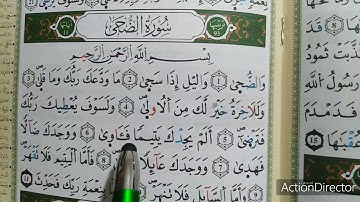 سُورَةُ الضُّحَى
بِسْمِ اللَّهِ الرَّحْمٰنِ الرَّحِيمِ
وَالضُّحَىٰ ١ وَالَّيْلِ إِذَا سَجَىٰ ٢ مَا وَدَّعَكَ رَبُّكَ وَمَا قَلَىٰ ٣
وَلَلْاٰخِرَةُ خَيْرٌ لَّكَ مِنَ الْأُولَىٰ ٤ وَلَسَوْفَ يُعْطِيكَ رَبُّكَ
فَتَرْضَىٰ ٥ أَلَمْ يَجِدْكَ يَتِيمًا فَـَٔاوَىٰ ٦ وَوَجَدَكَ ضَآلًّا
فَهَدَىٰ ٧ وَوَجَدَكَ عَآئِلًا فَأَغْنَىٰ ٨ فَأَمَّا الْيَتِيمَ فَلَا تَقْهَرْ
٩ وَأَمَّا السَّآئِلَ فَلَا تَنْهَرْ نِعْمَةِ رَبِّكَ فَحَدِّثْ ١١
ثَمُودُ
رَسُولُ اللَّهِ
فَدَمْدَمَ
عُقْبَٰهَا ١٥
ActionDirector